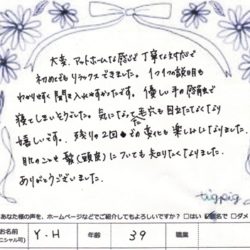 大変、アットホームな感じで丁寧な対応で
初めてでもリラックスできました。1つ1つの説明も
わかりやすく 聞き入れやすかったです。優しい手の感触で
寝てしまいそうでした。気になって 毛穴も目立たなくなり
嬉しいです。残りの2回 の変化も楽しみになりました。
肌のことも 頭(頭皮)についても知りたくなりました。
ありがとうございました。
あなた様の声を、ホームページなどでご紹介してもよろしいですか? □はい □匿名で □ダメ
お名前 Y・H 年齢 39 職業
イニシャル可)